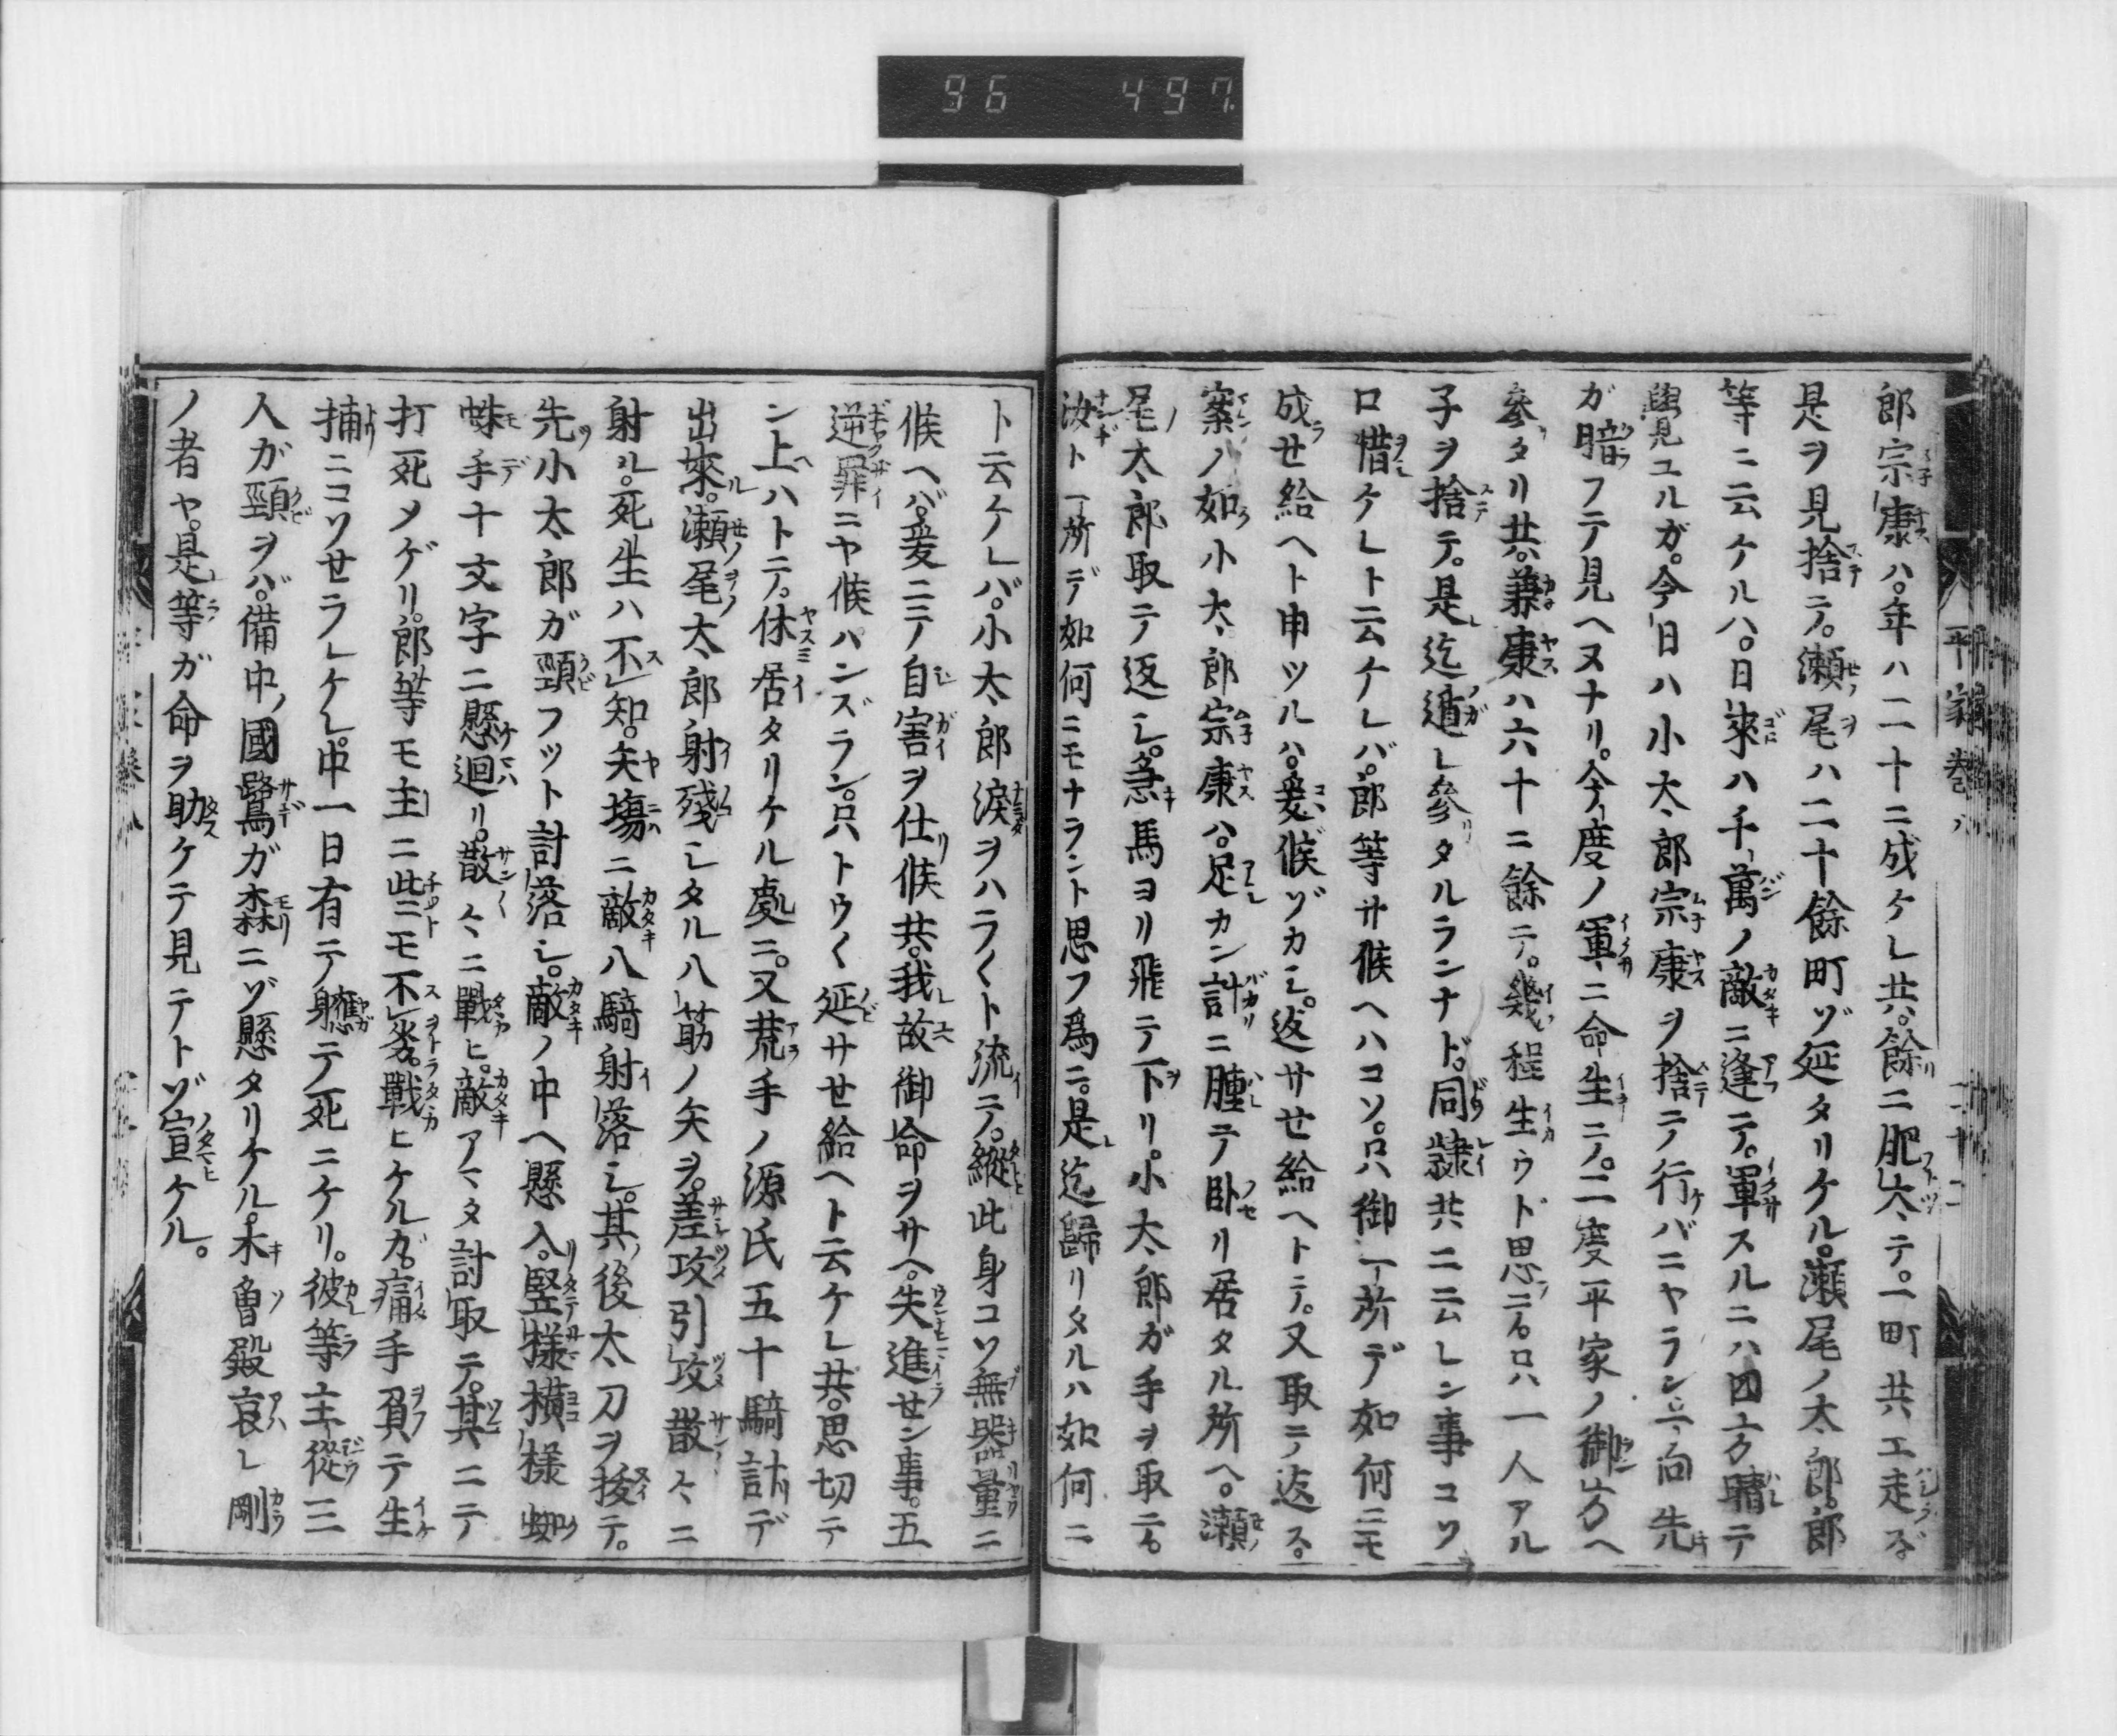 96 497
平家巻八 二十二
郎宗康ハ。年ハ二十ニ成ケレ共。餘ニ肥太テ。一町共エ走ズ。
是ヲ見捨テ。瀬尾ハ二十餘町ゾ延タリケル。瀬尾ノ太郎。郎
等ニ云ケルハ。日來ハ千萬ノ敵ニ逢テ。軍スルニハ四方晴テ
覺ユルガ。今日ハ小太郎宗康ヲ捨テ行バニヤラン。向先
ガ暗フテ見ヘヌナリ。今度ノ軍ニ命生テ。二度平家ノ御方ヘ
參タリ共。兼康ハ六十ニ餘テ。幾程生ウト思テ。只一人アル
子ヲ捨テ。是迄遁レ參タルランナド。同隷共ニ云レン事コソ
口惜ケレト云ケレバ。郎等サ候ヘハコソ。只御一所デ如何ニモ
成セ給ヘト申ツルハ。爰候ゾカシ。返サせ給ヘトテ。又取テ返ス。
案ノ如小太郎宗康ハ。足カン計ニ腫テ卧リ居タル所ヘ。瀬
尾太郎取テ返シ。急馬ヨリ飛テ下リ。小太郎ガ手ヲ取テ。
汝ト一所デ如何ニモナラント思フ爲ニ。是迄歸リタルハ如何ニ
ト云ケレバ。小太郎淚ヲハラ〱ト流テ。縱此身コソ無器量ニ
候ヘバ。爰ニテ自害ヲ仕候共。我故御命ヲサヘ。失進せン事。五
逆罪ニヤ候ハンズラン。只トウ〱延サせ給ヘト云ケレ共。思切テ
ン上ハトテ。休居タリケル處ニ。又荒手ノ源氏五十騎計デ
出來。瀬尾太郎射殘シタル八筋ノ矢ヲ。差攻引攻散々ニ
射ル。死生ハ不知。矢塲ニ敵八騎射落シ。其後太刀ヲ拔テ。
先小太郎ガ頸フツト討落シ。敵ノ中ヘ懸入。竪様横様蜘
蛛手十文字ニ懸廻リ。散々ニ戰ヒ。敵アマタ討取テ。其ニテ
打死メゲリ。郎等モ主ニ些モ不劣。戰ヒケルガ。痛手負テ生
捕ニコソせラレケレ。中一日有テ軈テ死ニケリ。彼等主從三
人ガ頸ヲバ。備中國鷺ガ森ニゾ懸タリケル。木曽殿哀レ剛
ノ者ヤ。是等ガ命ヲ助ケテ見テトゾ宣ケル。